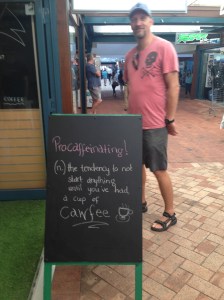 Procaffeinating!
(n.) the tendency to not
start anything
until you've had
a cup of
Cawfee